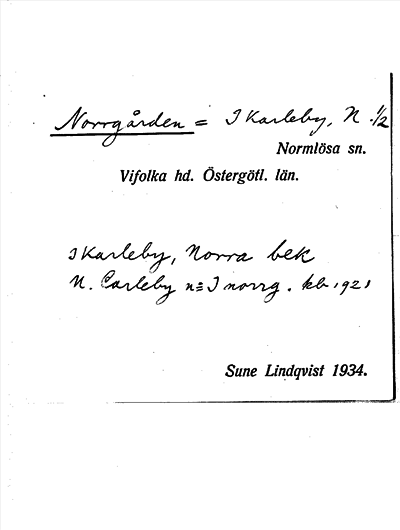 Norrgården = I Karleby, N. 1/2
Normlösa sn.
Vifolka hd. Östergötl. län.
I Karleby, Norra bek
N. Carleby n:s I norrg. kb 1921
Sune Lindqvist 1934.